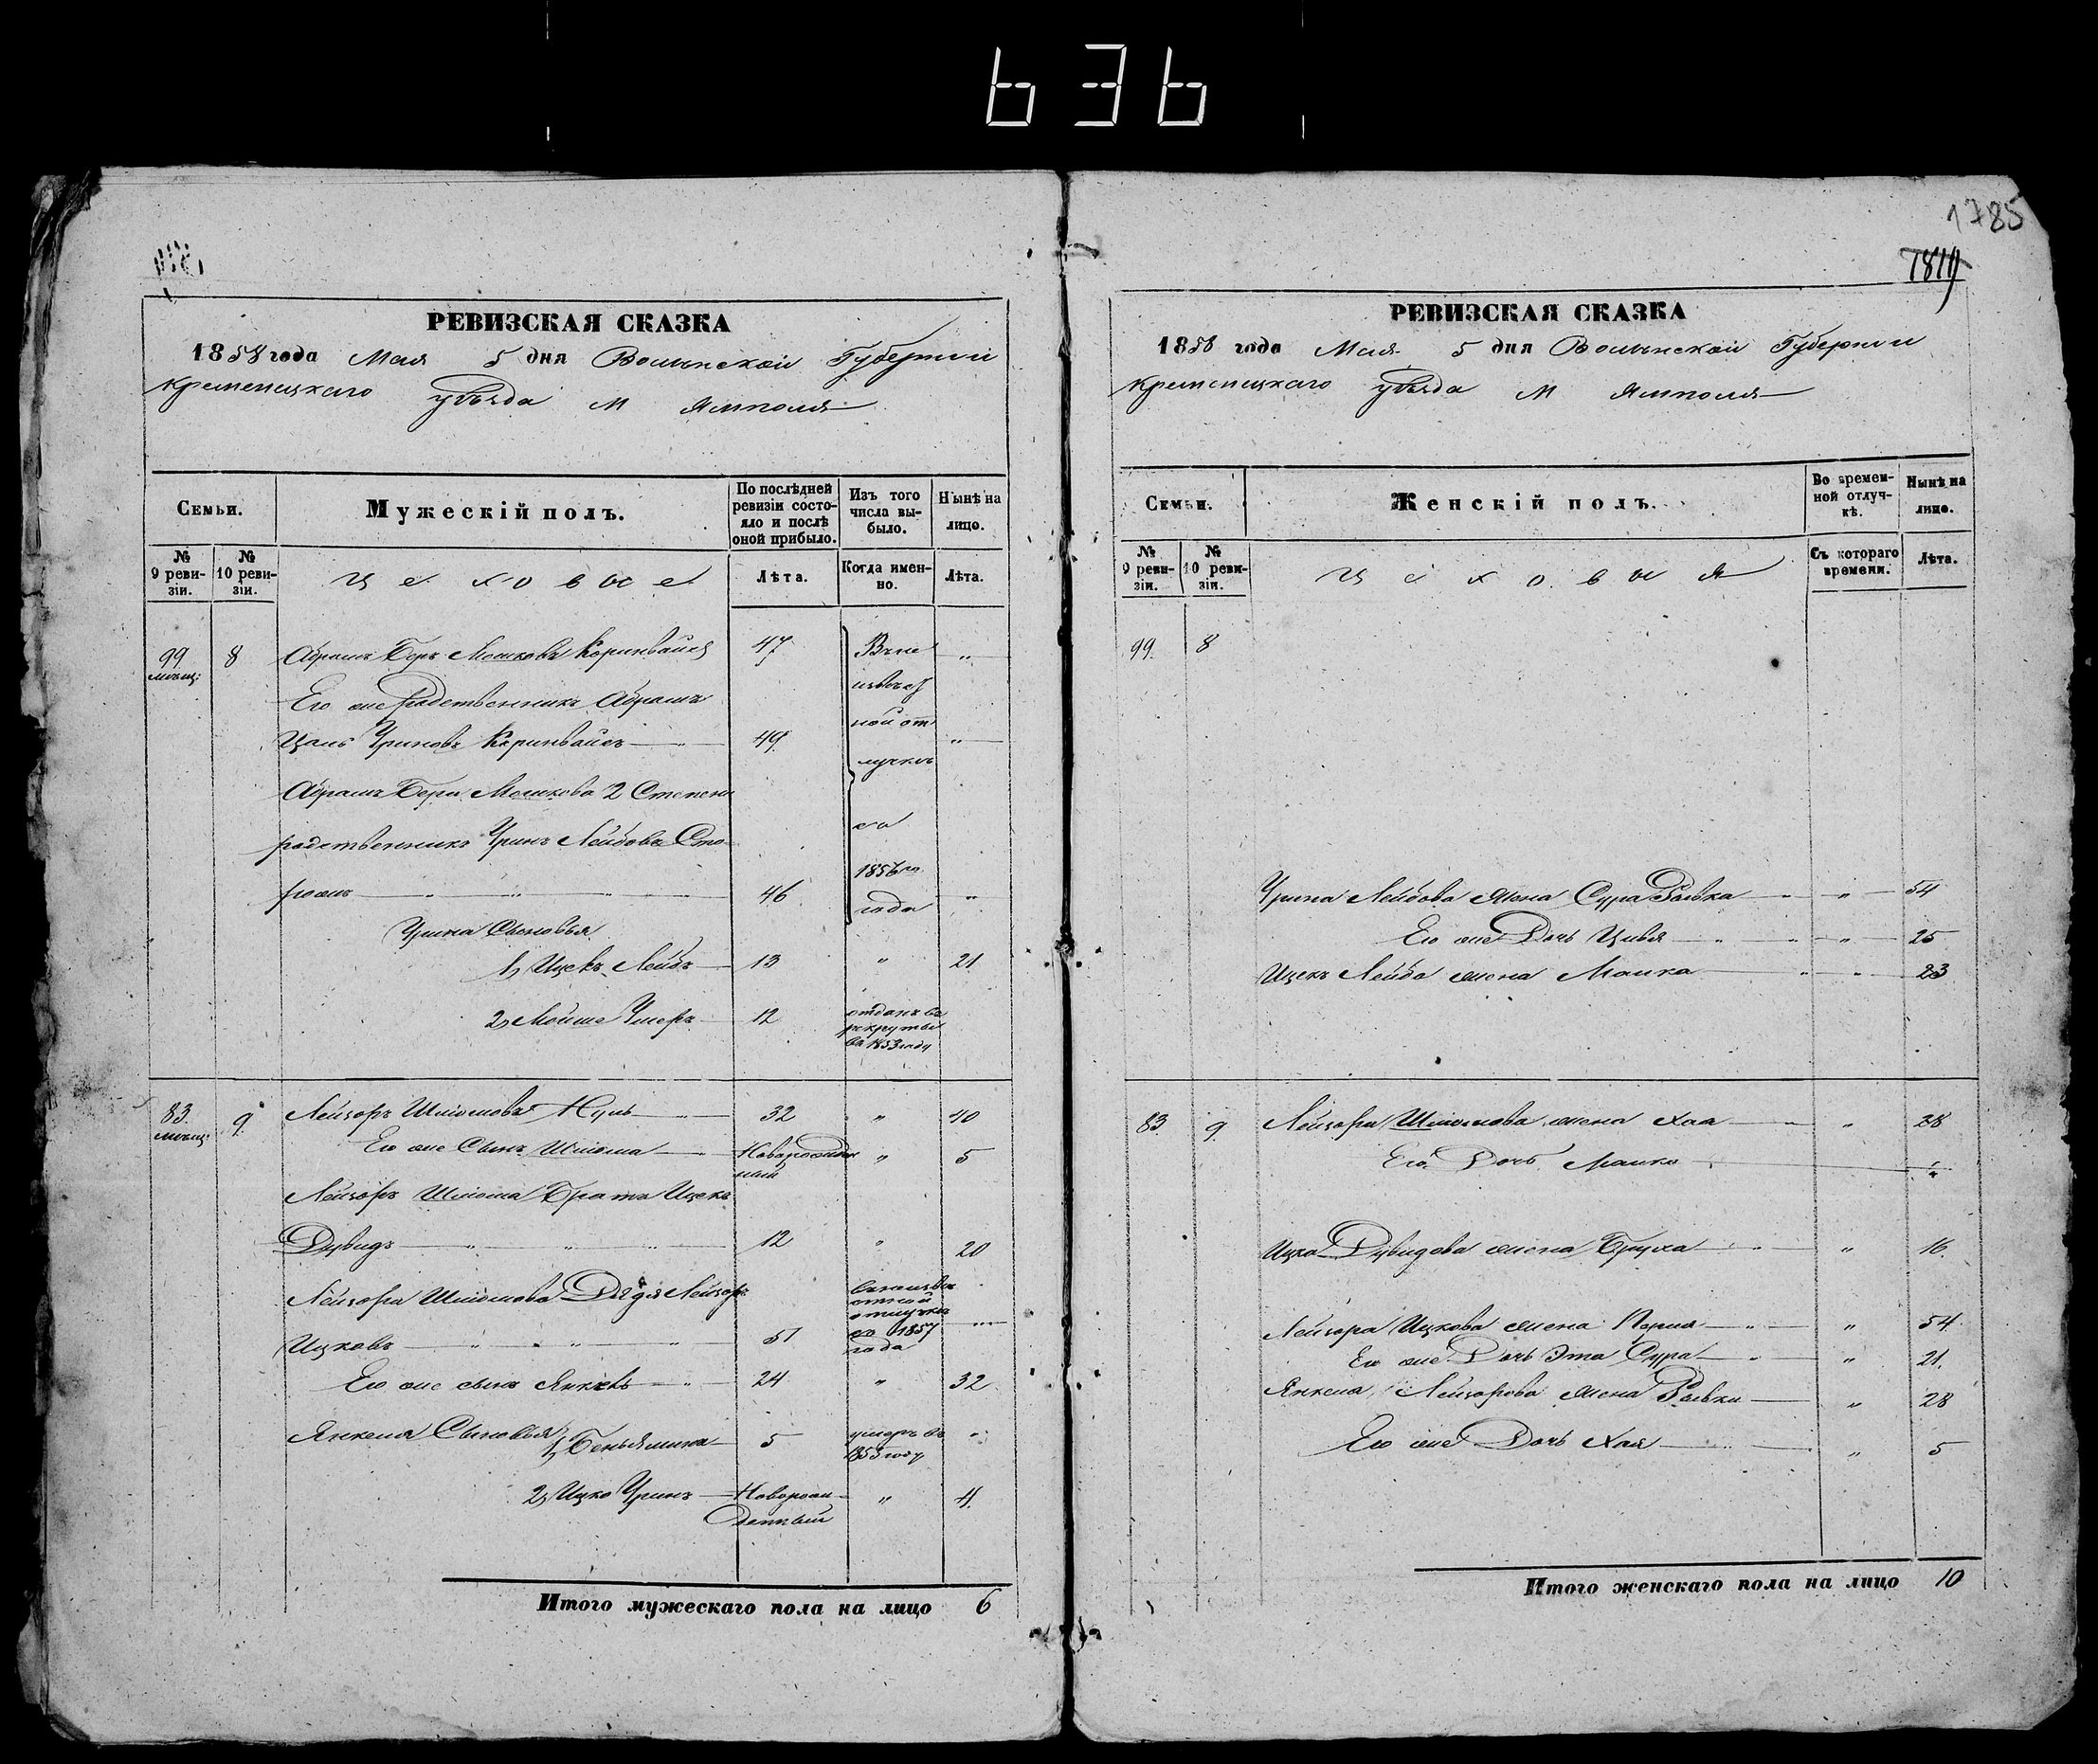 636
1785
1819
РЕВИЗСКАЯ СКАЗКА
1858 года Мая 5 дня Волынской Губерніи
Кременецкаго уѣзда М Ямполя
Семьи.
Мужескій полъ.
По послѣдней ревизіи состояло и послѣ оной прибыло.
Изъ того числа выбыло.
Нынѣ на лицо.
№ 9 ревизіи.
№ 10 ревизіи.
Цеховые
Лѣта.
Когда именно.
Лѣта.
99 мѣщ: 8 Абрамъ Беръ Мошковъ 47 Въ не „
Его же родственникъ Абрамъ извѣст
ной от
Уриновъ 49 „
лучкѣ
Абрамъ Бера Мошкова 2 Степени
родственникъ Уринъ Лейбовъ Сто- съ
1856го
рожъ 46 года „
Урина Сыновья
1, Ицекъ Лейбъ 13 „ 21
2, Мойше Умеръ 12 отданъ въ рекруты въ 1853 году
83 мѣщ: 9 Лейзоръ Шліомовъ 32 „ 40
Его же Сынъ Шліома Новорожденный „ 5
Лейзоръ Шліома Братъ Ицекъ
Дувидъ 12 „ 20
Лейзора Шліомова Дядя Лейзоръ
Ицковъ 51 въ неизвѣстной отлучкѣ съ 1857 года „
Его же сынъ Янкель 24 „ 32
Янкеля Сыновья 1, Беньяминъ 5 умеръ въ 1853 году „
2, Ицко Уринъ Новорожденный „ 4
Итого мужескаго пола на лицо 6
РЕВИЗСКАЯ СКАЗКА
1858 года Мая 5 дня Волынской Губерніи
Кременецкаго уѣзда М Ямполя
Семьи.
Женскій полъ.
Во временной отлучкѣ.
Нынѣ на лицо.
№ 9 ревизіи.
№ 10 ревизіи.
Цеховыя
Съ котораго времени.
Лѣта.
99. 8
Урина Лейбова жена Сура Ривка „ 54
Его же Дочь Цивя „ 25
Ицекъ Лейба жена Малка „ 23
83. 9 Лейзора Шліомова жена Хая „ 28
Его Дочь Малка „
Ицка Дувидова жена Бруха „ 16
Лейзора Ицкова жена Перля „ 54
Его же Дочь Эта Сура „ 21.
Янкеля Лейзорова жена Ривка „ 28
Его же Дочь Хая „ 5
Итого женскаго пола на лицо 10